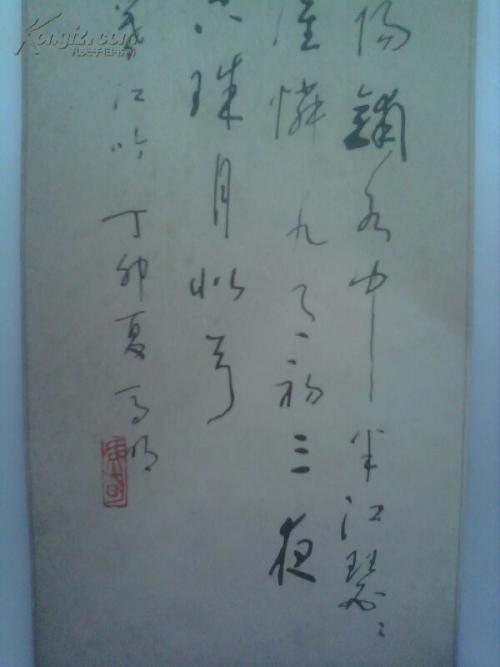 Kongfz.com
孔夫子旧书网
陽鋪水中半江瑟々
憐九月初三夜
珠月似弓
江吟 丁卯夏